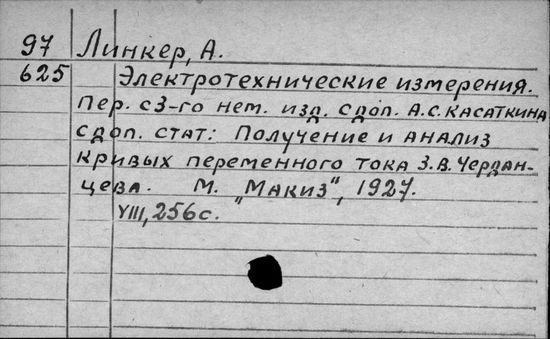 97 Линкер, А.
625 Электротехнические измерения.
Пер. с 3-го нем. изд. с доп. А.С. Касаткина
с доп. стат: Получение и анализ
кривых переменного тока З.В. Чердан-
цева. М. "Макиз", 1927.
VIII, 256 с.